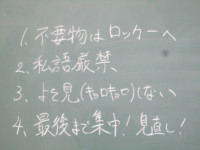 1. 不要物はロッカーへ
2. 私語厳禁
3. よそ見(キョロキョロ)しない
4. 最後まで集中!見直し!